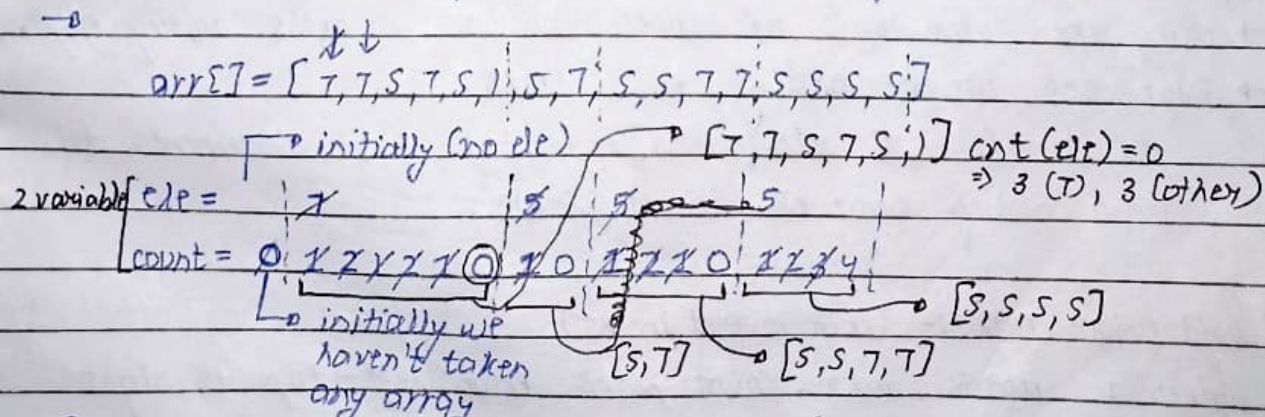 arr[] = [ 7, 7, 5, 7, 5, 1, 5, 7, 5, 5, 7, 7, 5, 5, 5, 5 ]
initially (no ele)
[7, 7, 5, 7, 5, 1] cnt (ele) = 0
⇒ 3 (7), 3 (other)
2 variable [ ele = 7 5 5 5
count = 0 1 2 1 2 1 0 1 0 1 2 1 0 1 2 3 4
initially we
haven't taken
any array
[5, 7]
[5, 5, 7, 7]
[5, 5, 5, 5]